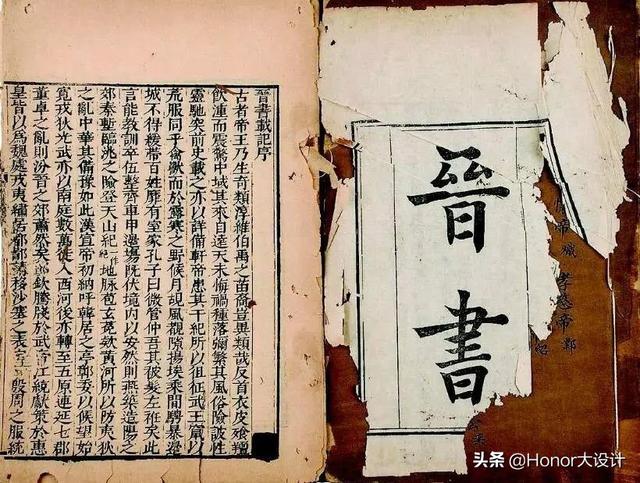 晉書
帝熾 孝愍帝鄴
晉書載記序
古者帝王乃生奇類淳維伯禹之苗裔豈異類哉反首衣皮餐羶
飲湩而震驚中域其來自遠天未悔禍種落彌繁其風俗險詖性
靈馳突前史載之亦以詳備軒帝患其干紀所以徂征武王竄以
荒服同乎禽獸而於露寒之野候月覘風覩隙揚埃乘間騁暴邊
城不得緩帶百姓靡有室家孔子曰微管仲吾其被髮左衽矣此
言能教訓卒伍整齊車甲邊場既伏境內以安然則燕築造陽之
郊秦塹臨洮之險登天山紀地脈苞玄菟款黃河所以防夷狄
之亂中華其備豫如此漢宣帝初納呼韓居之亭鄣委以候望始
寬戎狄光武亦以南庭數萬徙入西河後亦轉至五原連延七郡
董卓之亂則汾晉之郊蕭然矣郭欽騰牋於武帝江統獻策於惠
皇皆以爲魏處戎夷繡居都鄙請移沙塞之表定一殷周之服統
头条 @Honor大设计